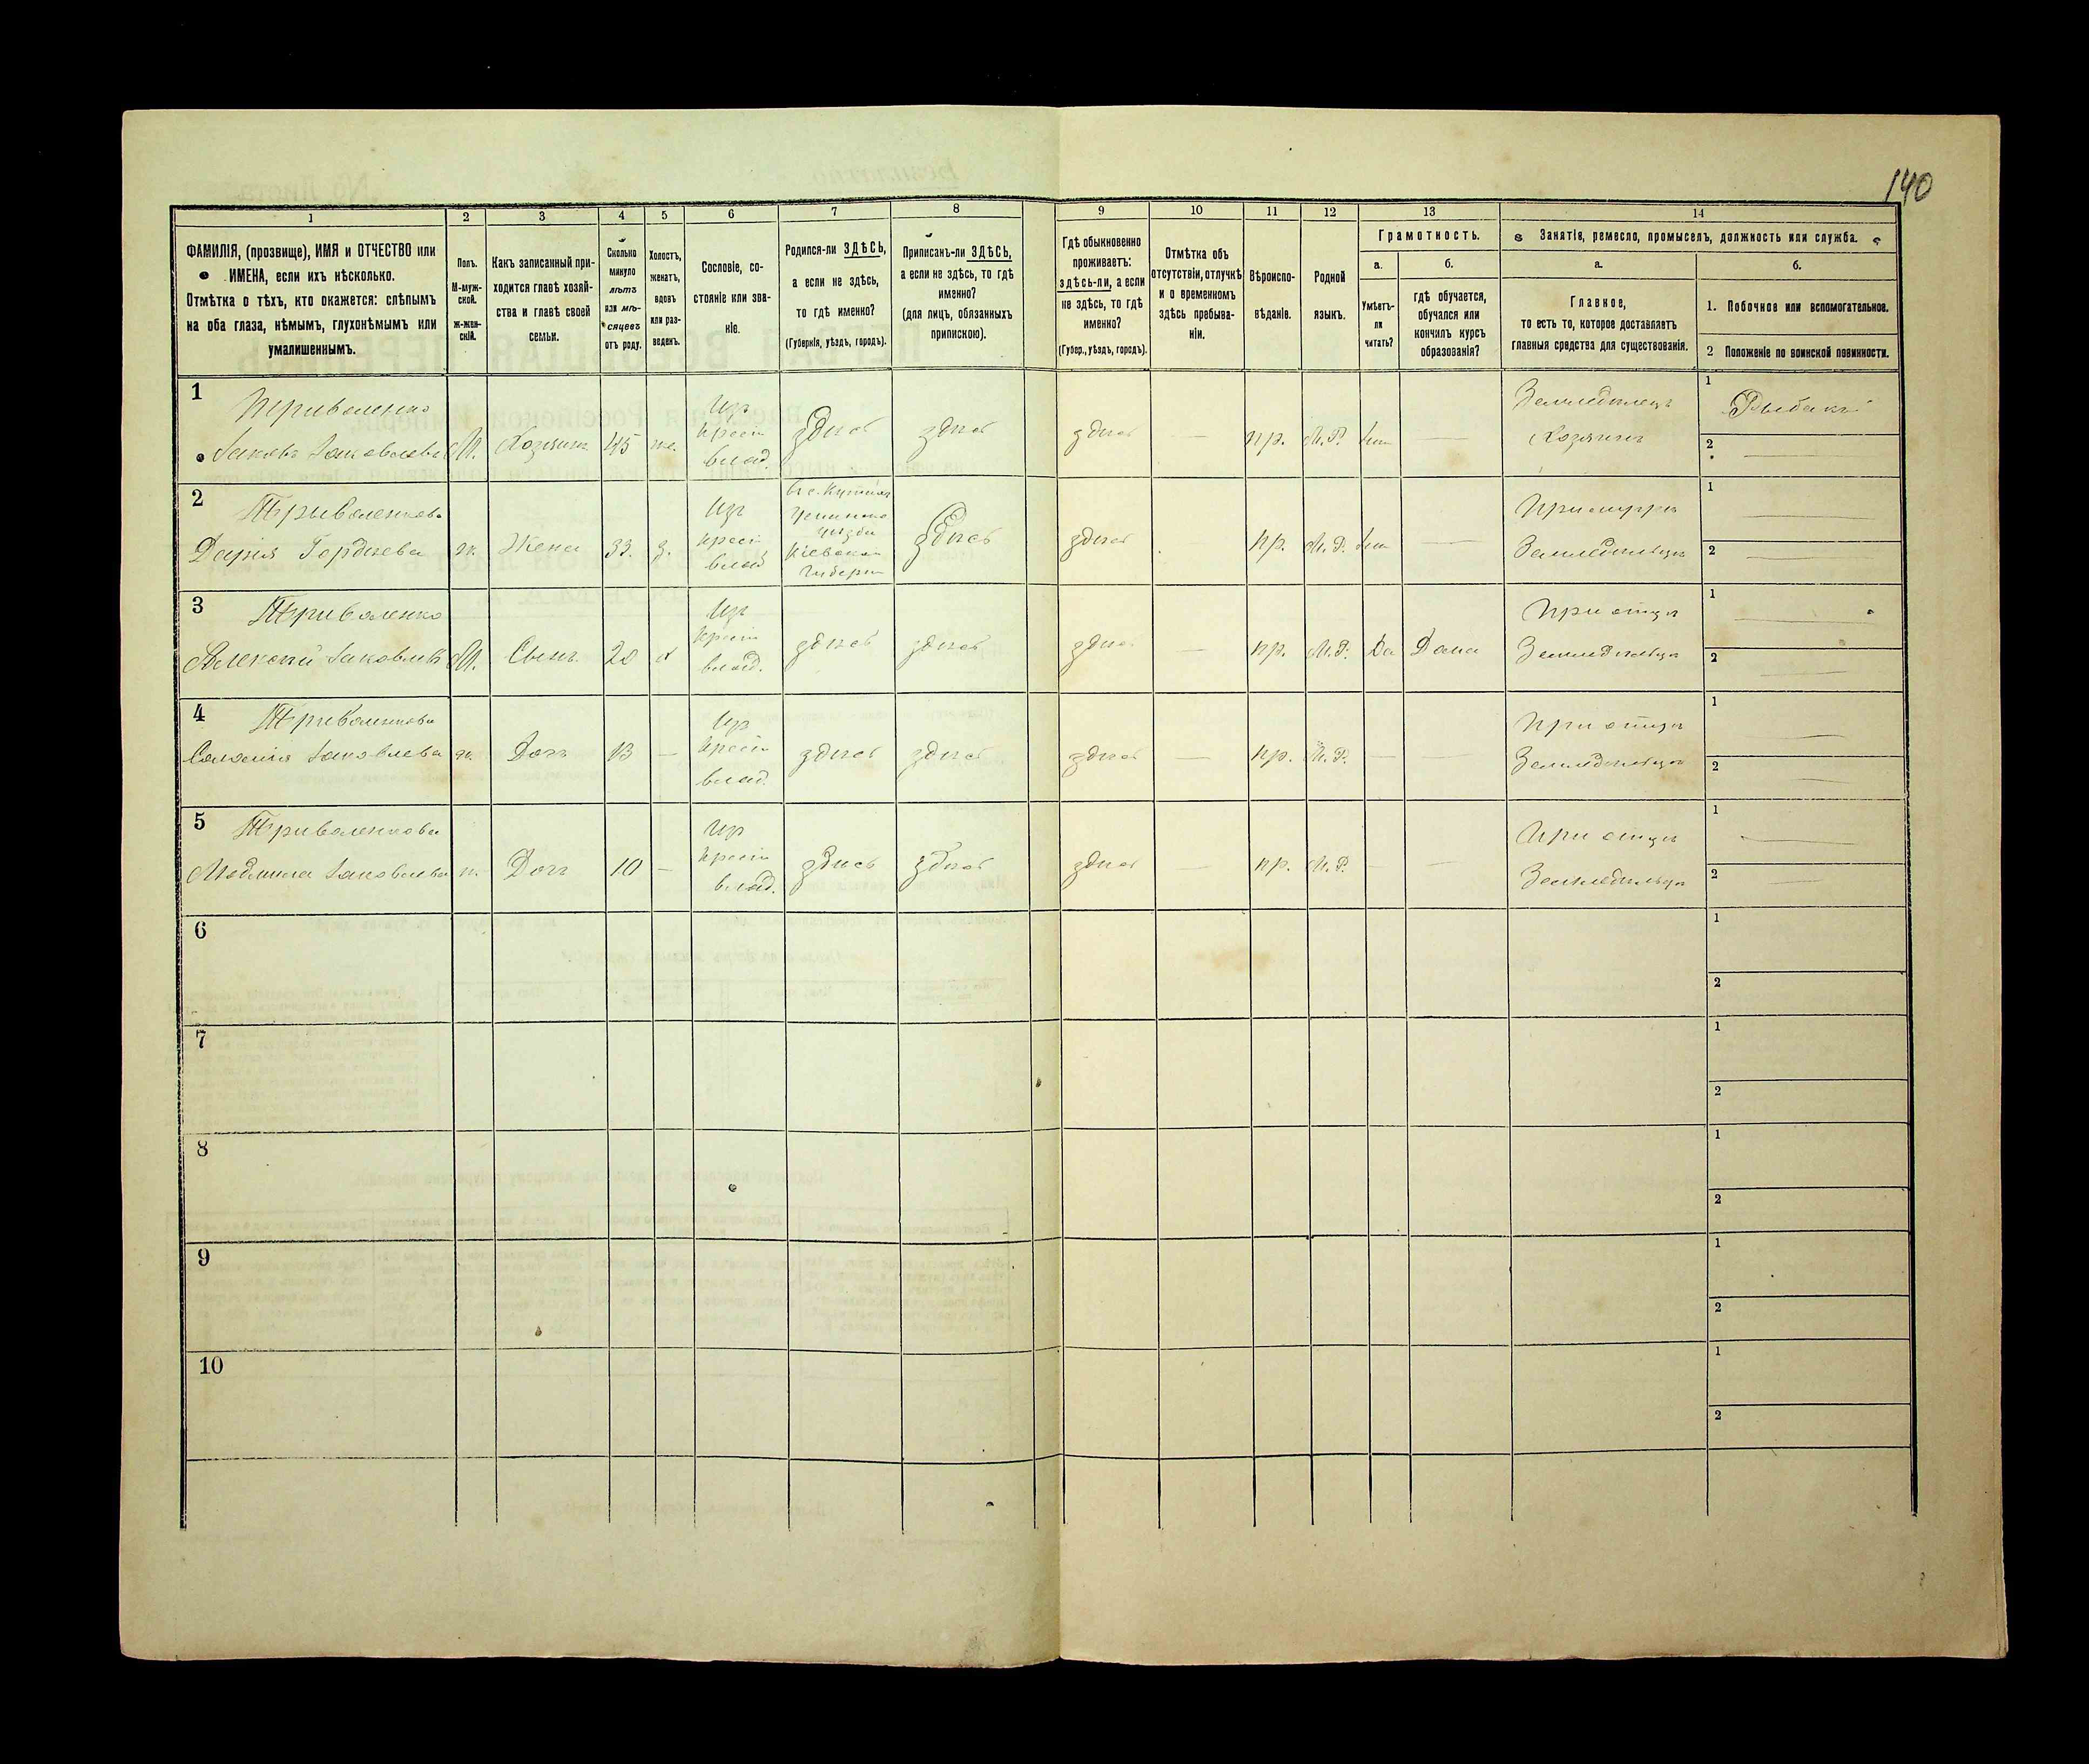 140
1
2
3
4
5
6
7
8
9
10
11
12
13
14
ФАМИЛІЯ, (прозвище), ИМЯ и ОТЧЕСТВО или
ИМЕНА, если ихъ нѣсколько.
Отмѣтка о тѣхъ, кто окажется: слѣпымъ
на оба глаза, нѣмымъ, глухонѣмымъ или
умалишеннымъ.
Полъ.
М-муж-
ской.
ж-жен-
скій.
Какъ записанный при-
ходится главѣ хозяй-
ства и главѣ своей
семьи.
Сколько
минуло
лѣтъ
или мѣ-
сяцевъ
отъ роду.
Холостъ,
женатъ,
вдовъ
или раз-
веденъ.
Сословіе, со-
стояніе или зва-
ніе.
Родился-ли ЗДѢСЬ,
а если не здѣсь,
то гдѣ именно?
(Губернія, уѣздъ, городъ).
Приписанъ-ли ЗДѢСЬ,
а если не здѣсь, то гдѣ
именно?
(для лицъ, обязанныхъ
припискою).
Гдѣ обыкновенно
проживаетъ:
здѣсь-ли, а если
не здѣсь, то гдѣ
именно?
(Губер., уѣздъ, городъ).
Отмѣтка объ
отсутствіи, отлучкѣ
и о временномъ
здѣсь пребыва-
ніи.
Вѣроиспо-
вѣданіе.
Родной
языкъ.
Грамотность.
а.
Умѣетъ-
ли
читать?
б.
гдѣ обучается,
обучался или
кончилъ курсъ
образованія?
Занятія, ремесло, промыселъ, должность или служба.
а.
Главное,
то есть то, которое доставляетъ
главныя средства для существованія.
б.
1. Побочное или вспомогательное.
2 Положеніе по воинской повинности.
1
Приваленко
Іаковъ Іаковлевъ
М.
Хозяинъ
45
же.
Из
крест
влад.
здѣсь
здѣсь
здѣсь
—
пр.
М.Р.
—
Земледѣлецъ
Хозяинъ
1
Рыбакъ
2
2
Дарія Гордѣева
ж.
Жена
33.
з.
Изъ
крест
влад
уѣзда
Кіевской
Губерн
здѣсь
здѣсь
пр.
М.Р.
—
При
Земледѣльцѣ
1
2
3
Приваленко
Алексѣй Іаковлев
М.
Сынъ
20
х
Изъ
крест
влад.
здѣсь
здѣсь
здѣсь
—
пр.
М.Р.
Да
Дома
При отцѣ
Земледѣльцѣ
1
2
4
Приваленкова
Іаковлева
ж.
Дочь
13
—
Из
крест
влад.
здѣсь
здѣсь
здѣсь
—
пр.
М.Р.
—
—
При отцѣ
Земледѣльцѣ
1
2
5
Приваленкова
Людмила Іаковлева
ж.
Дочь
10
—
Из
крест
влад.
здѣсь
здѣсь
здѣсь
—
пр.
М.Р.
—
—
При отцѣ
Земледѣльцѣ
1
2
6
1
2
7
1
2
8
1
2
9
1
2
10
1
2